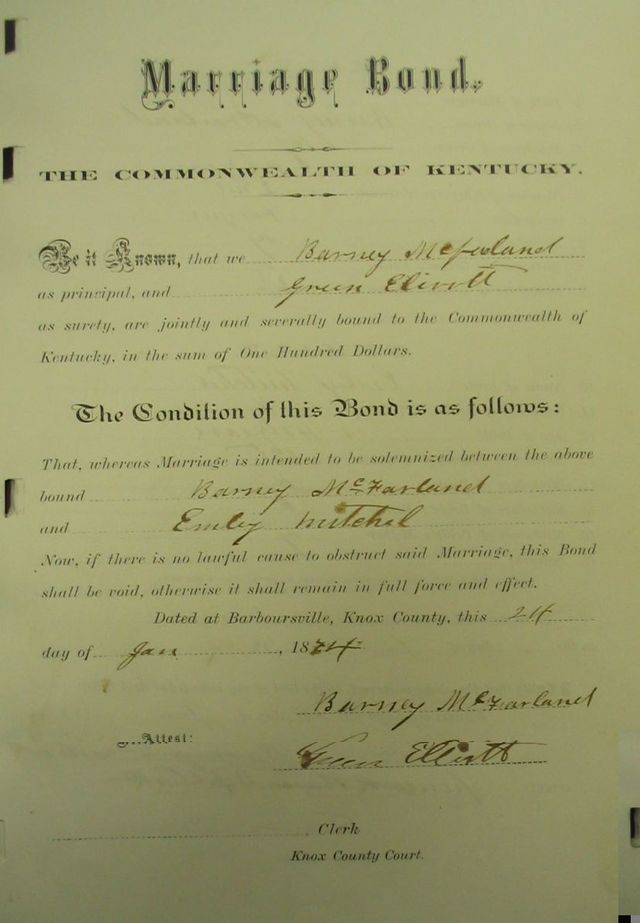 Marriage Bond.
THE COMMONWEALTH OF KENTUCKY.
Be it Known, that we Barney McFarland
as principal, and Green Elivott
as surety, are jointly and severally bound to the Commonwealth of
Kentucky, in the sum of One Hundred Dollars.
The Condition of this Bond is as follows:
That, whereas Marriage is intended to be solemnized between the above
bound Barney McFarland
and Emley Mitchel
Now, if there is no lawful cause to obstruct said Marriage, this Bond
shall be void, otherwise it shall remain in full force and effect.
Dated at Barboursville, Knox County, this 24
day of Jan, 1874
Barney McFarland
Attest:
Green Elliott
Clerk
Knox County Court.